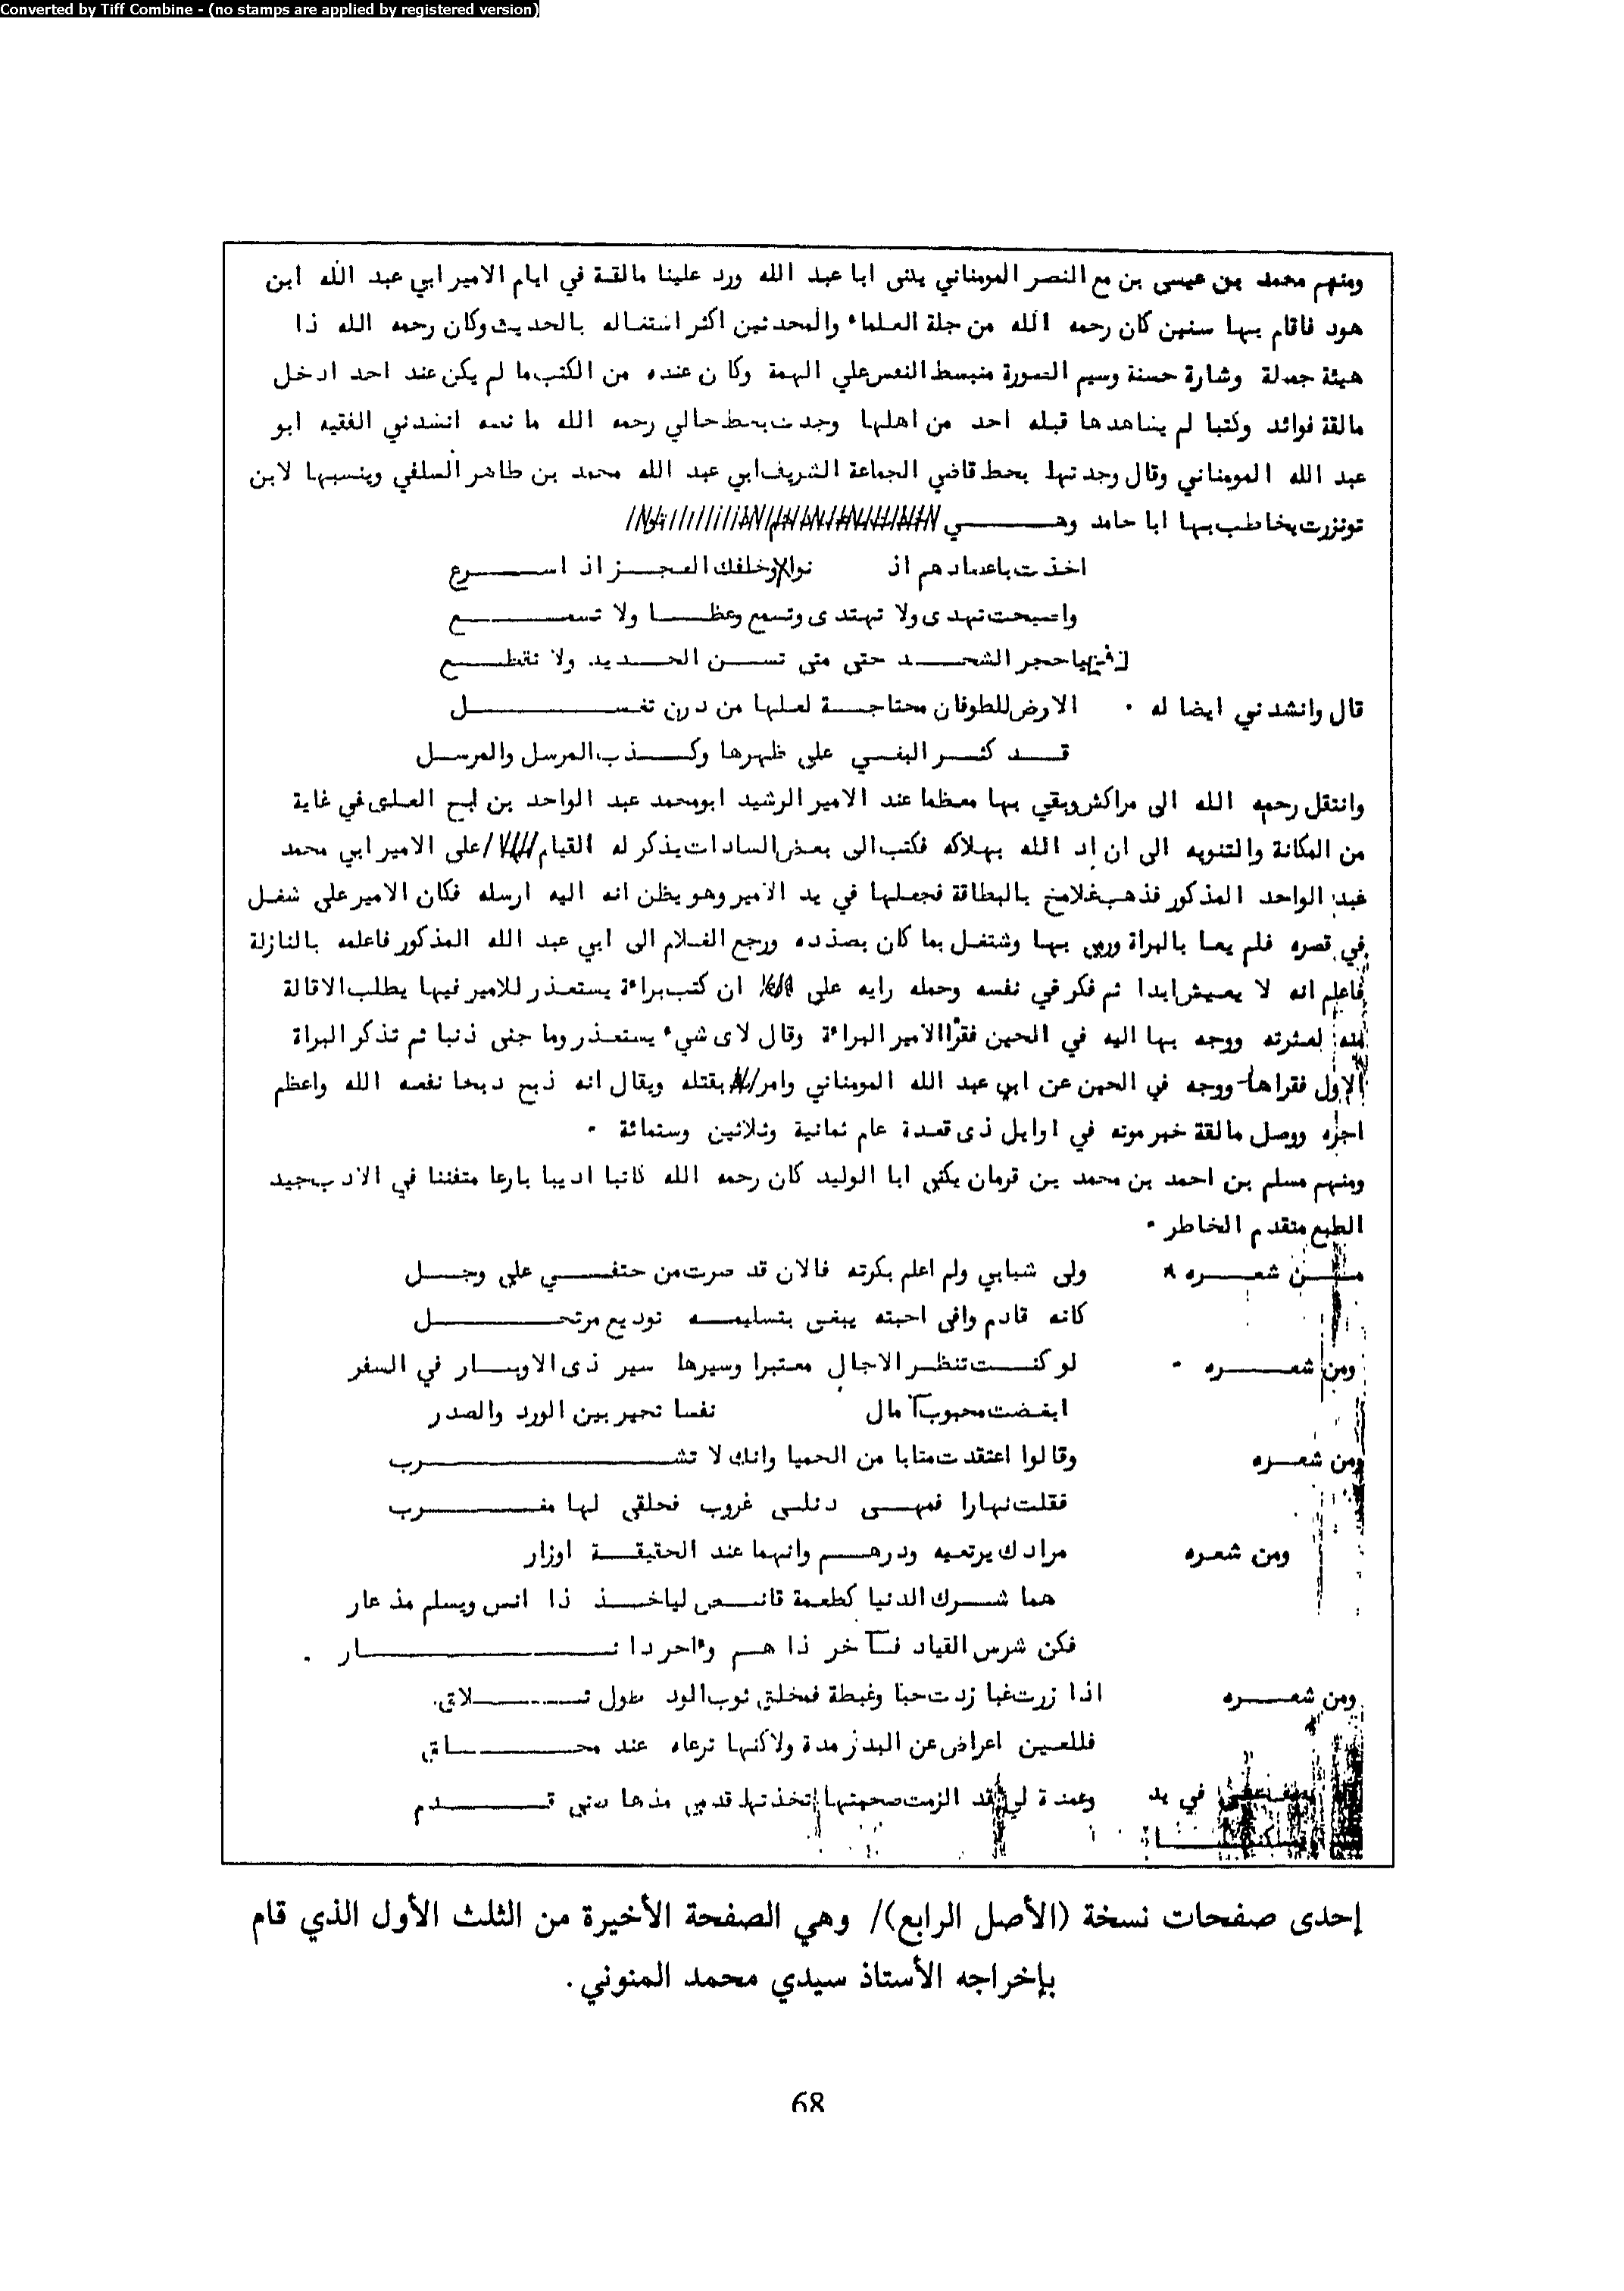 Converted by Tiff Combine - (no stamps are applied by registered version)
ومنهم محمد بن عيسى بن مع النصر المومناني يكنى ابا عبد الله ورد علينا مالقة في ايام الامير ابي عبد الله ابن
هود فاقام بها سنين كان رحمه الله من جلة العلماء والمحدثين اكثر اشتغاله بالحديث وكان رحمه الله ذا
هيئة جميلة وشارة حسنة وسيم الصورة منبسط النفس علي الهمة وكان عنده من الكتب ما لم يكن عند احد ادخل
مالقة فوائد وكتبا لم يشاهدها قبله احد من اهلها وجدت بخط خالي رحمه الله ما نصه انشدني الفقيه ابو
عبد الله المومناني وقال وجدتها بخط قاضي الجماعة الشريف ابي عبد الله محمد بن طاهر السلفي وينسبها لابن
تونزرت يخاطب بها ابا حامد وهي
اخذت باعضادهم اذ نوالا وخلفك العجز اذ اسرع
واصبحت تهدى ولا تهتدى وتسمع وعظا ولا تسمع
فيا حجر الشحذ حتى متى تسن الحديد ولا تقطع
قال وانشدني ايضا له . الارض للطوفان محتاجة لعلها من درن تغسل
قد كثر البغي على ظهرها وكذب المرسل والمرسل
وانتقل رحمه الله الى مراكش وبقي بها معظما عند الامير الرشيد ابو محمد عبد الواحد بن ابي العلى في غاية
من المكانة والتنويه الى ان اذ الله بهلاكه فكتب الى بعض السادات يذكر له القيام على الامير ابي محمد
عبد الواحد المذكور فذهب غلامه بالبطاقة فجعلها في يد الامير وهو يظن انه اليه ارسله فكان الامير على شغل
في قصره فلم يعبا بالبراة ورمى بها وشتغل بما كان بصدده ورجع الغلام الى ابي عبد الله المذكور فاعلمه بالنازلة
فاعلم انه لا يعيش ابدا ثم فكر في نفسه وحمله رايه على ان كتب براءة يستعذر للامير فيها يطلب الاقالة
منه لعثرته ووجه بها اليه في الحين فقرأ الامير البراءة وقال لاى شيء يستعذر وما جنى ذنبا ثم تذكر البراة
الاول فقراها ووجه في الحين عن ابي عبد الله المومناني وامر بقتله ويقال انه ذبح ذبحا نفعه الله واعظم
اجره ووصل مالقة خبر موته في اوايل ذى قعدة عام ثمانية وثلاثين وستمائة .
ومنهم مسلم بن احمد بن محمد بن قزمان يكنى ابا الوليد كان رحمه الله كاتبا اديبا بارعا متفننا في الادب جيد
الطبع متقدم الخاطر .
من شعره ولى شبابي ولم اعلم بكرته فالان قد صرت من حتفي على وجل
كانه قادم وافى احبته يبغى بتسليمه توديع مرتحل
ومن شعره . لو كنت تنظر الاجال معتبرا وسيرها سير ذى الاوبار في السفر
ابغضت محبوب آمال نفسا تحير بين الورد والصدر
ومن شعره وقالوا اعتقدت متابا من الحميا وانك لا تشرب
فقلت نهارا فمهى غروب فحلقى لها مغرب
ومن شعره مرادك ودرهم وانهما عند الحقيقة اوزار
هما شرك الدنيا كطعمة قانص لياخذ ذا انس ويسلم مذعار
فكن شرس القياد فآخر ذا هم واخر دا نار .
ومن شعره اذا زرت غبا زدت حبا وغبطة فمخلق ثوب الود طول تلاق.
فللعين اعراض عن البدر مدة ولاكنها ترعاه عند محاق
في يد وعمدة لي قد الزمت صحبتها اتخذتها قدمي مذها قدم
إحدى صفحات نسخة (الأصل الرابع)/ وهي الصفحة الأخيرة من الثلث الأول الذي قام
بإخراجه الأستاذ سيدي محمد المنوني.
68